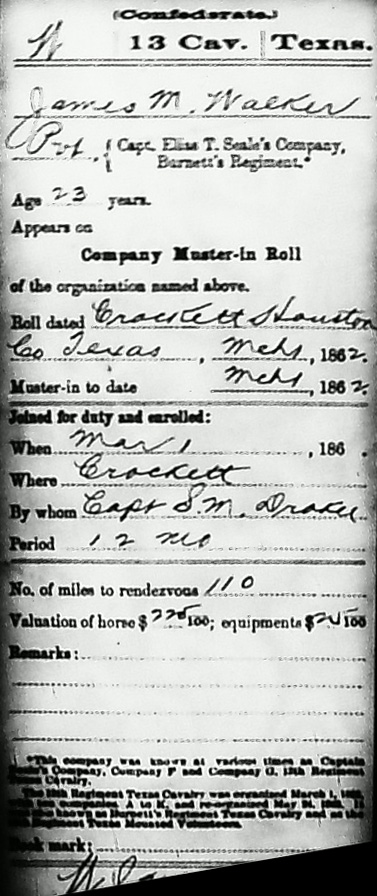 (Confederate.)
W 13 Cav. Texas.
James M. Walker
Pvt., { Capt. Elias T. Seale's Company,
Burnett's Regiment.*
Age 23 years.
Appears on
Company Muster-in Roll
of the organization named above.
Roll dated Crockett Houston
Co Texas, Mch 1, 1862.
Muster-in to date Mch 1, 1862.
Joined for duty and enrolled:
When Mar 1, 186 .
Where Crockett
By whom Capt S. M. Drake
Period 12 mo
No. of miles to rendezvous 110
Valuation of horse $ 225/100; equipments $ 25/100
Remarks:
*This company was known at various times as Captain
Seale's Company, Company F and Company G, 13th Regiment
Texas Cavalry.
The 13th Regiment Texas Cavalry was organized March 1, 1862,
with ten companies, A to K, and re-organized May 24, 1862. It
was also known as Burnett's Regiment Texas Cavalry and as the
13th Regiment Texas Mounted Volunteers.
Book mark: